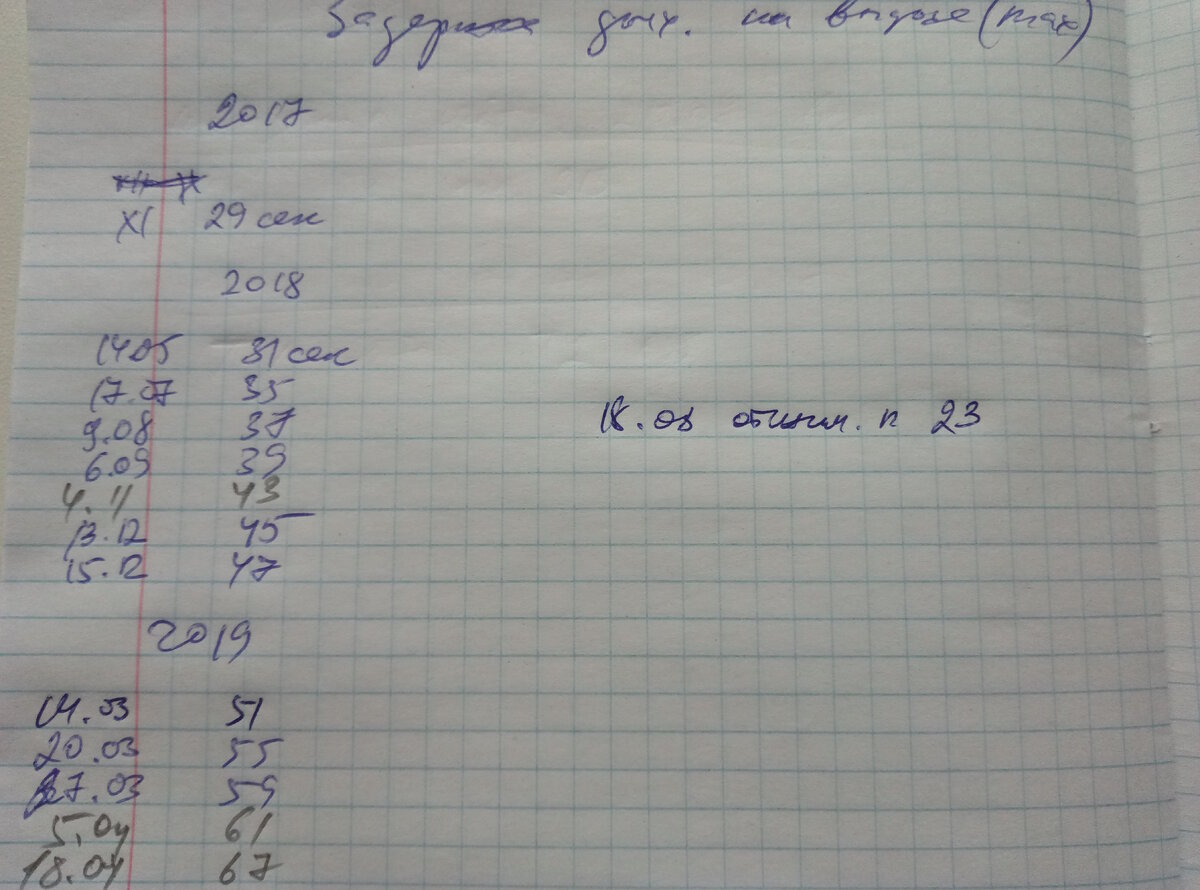 Задержка дых. на выдохе (max)
2017
XI 29 сек
2018
14.05 31 сек
17.07 35
9.08 37
18.08 отжим. п 23
6.09 39
4.11 43
13.12 45
15.12 47
2019
14.03 51
20.03 55
27.03 59
5.04 61
18.04 67